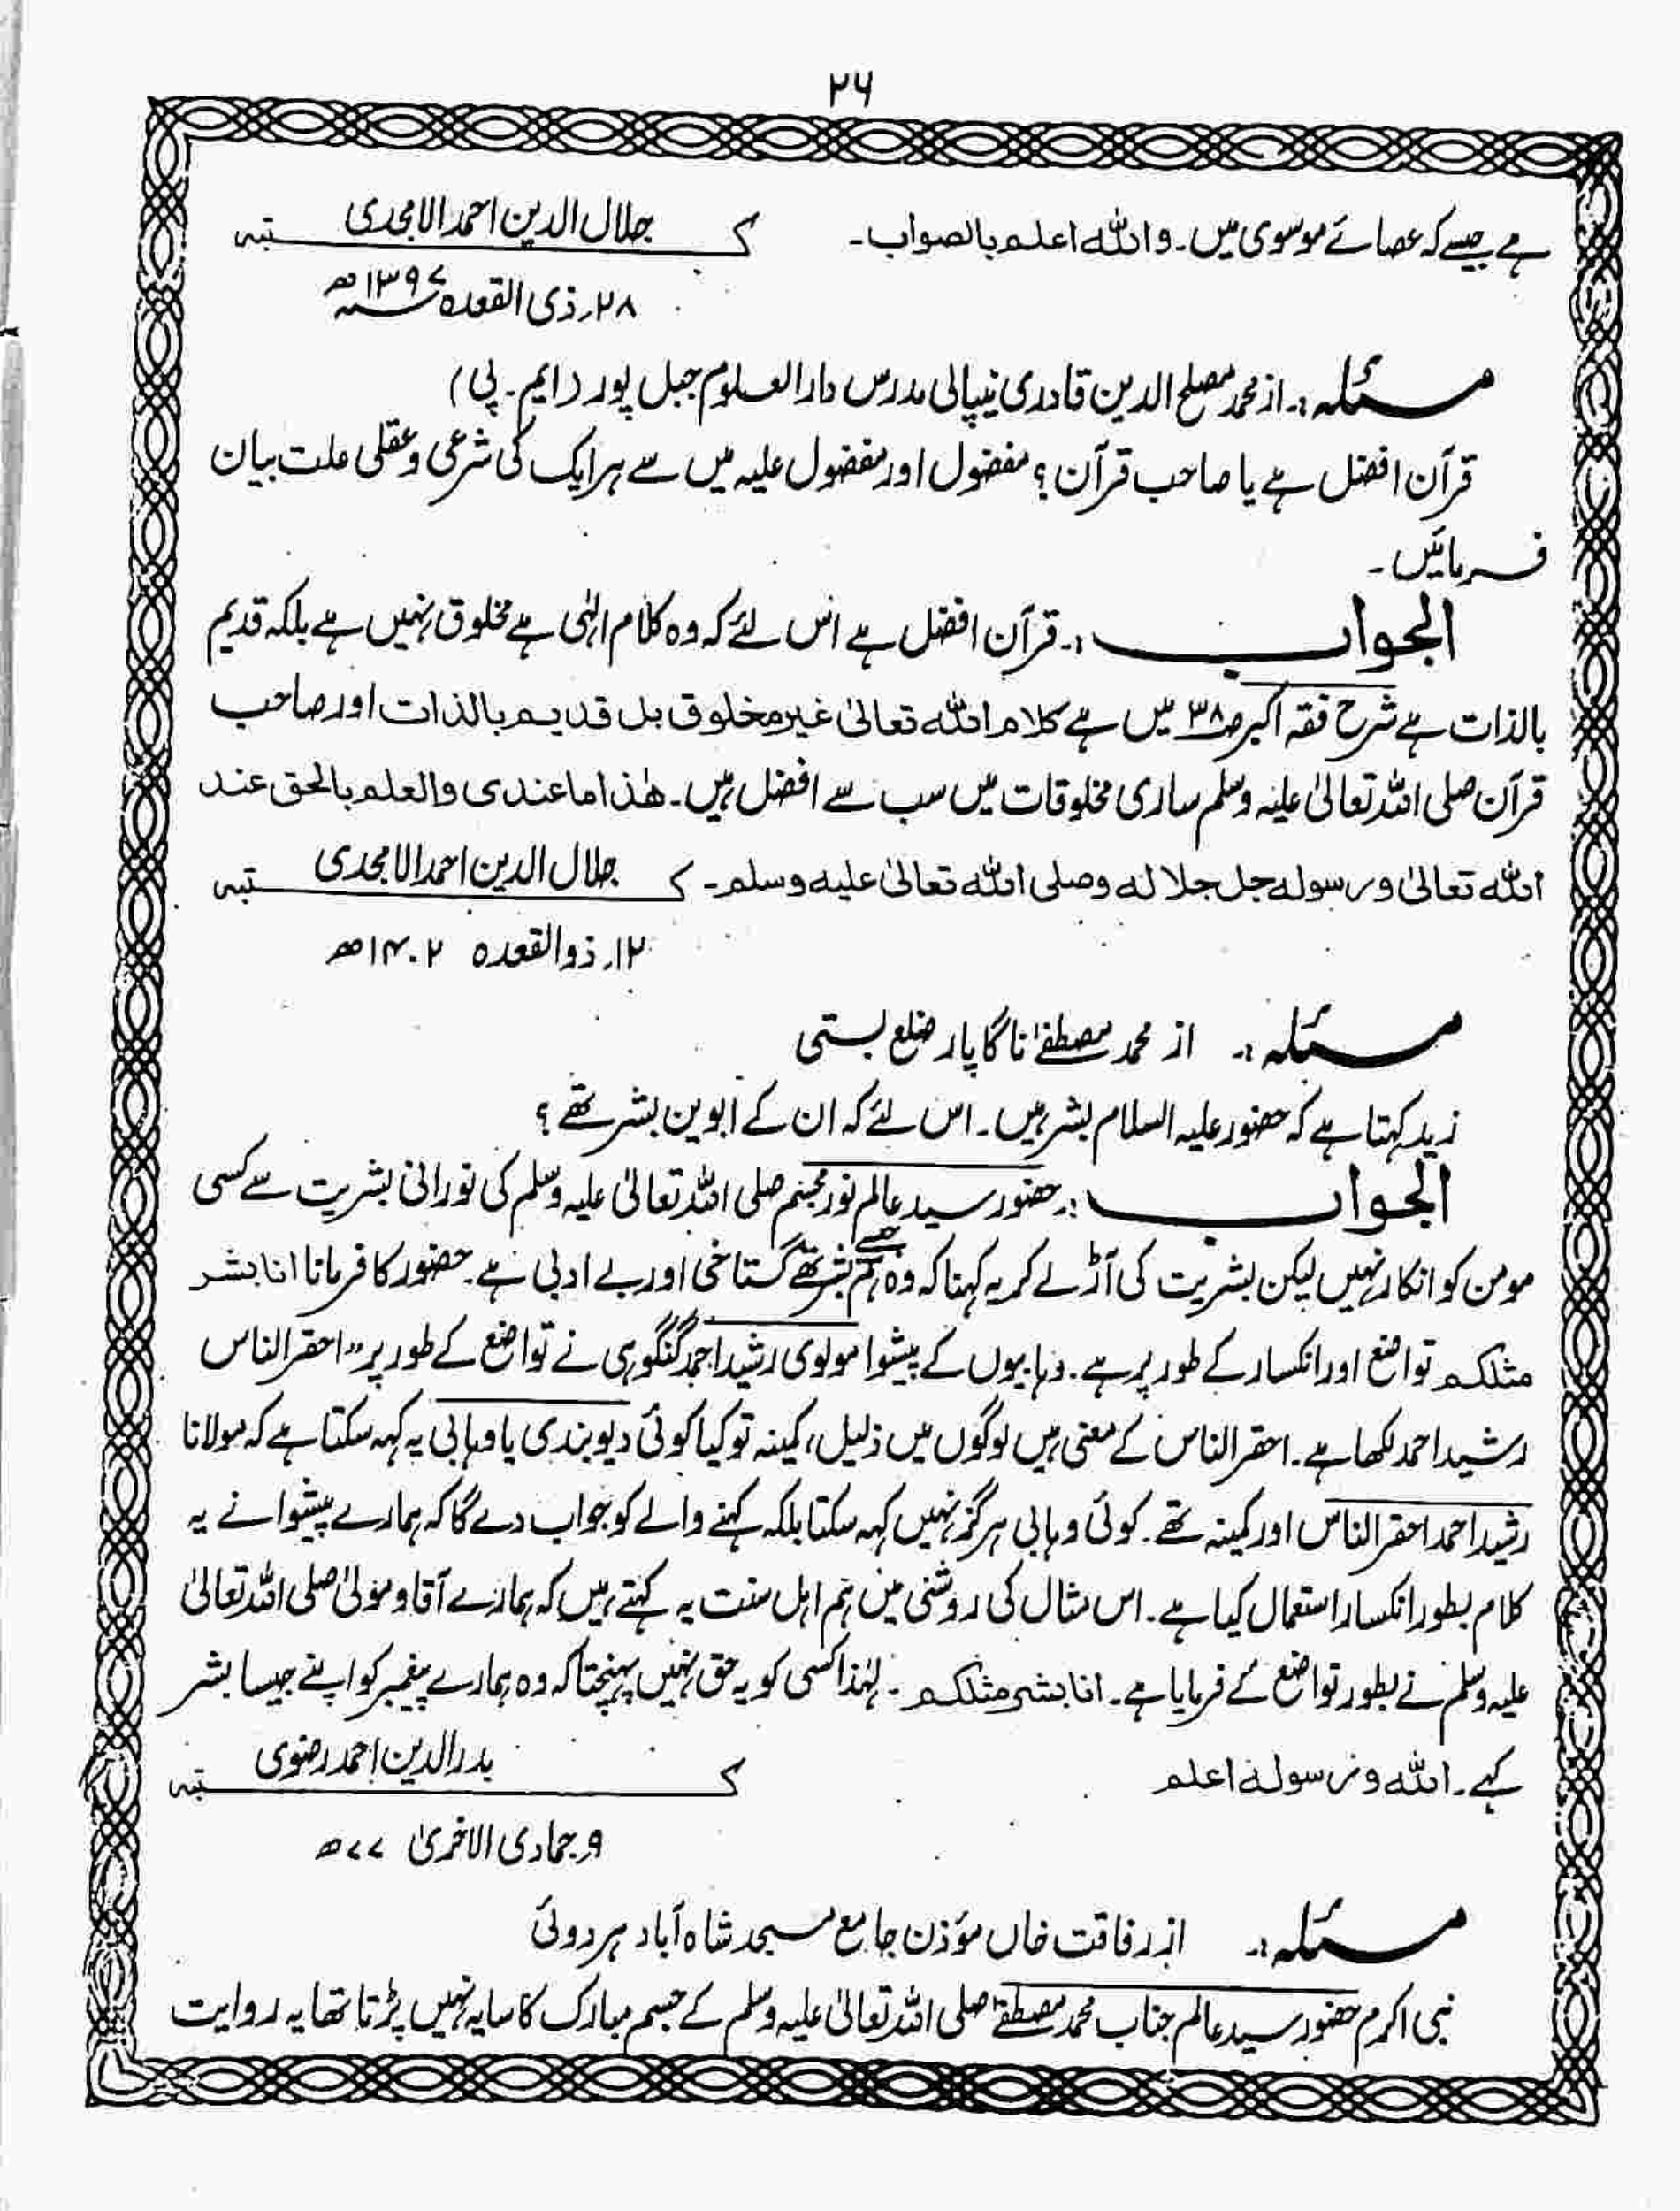 ۲۶
ہے جیسے کہ عصائے موسوی میں۔ واللہ اعلم بالصواب۔ کتبہ جلال الدین احمد الامجدی
۲۸؍ ذی القعدہ ۱۳۹۷ھ
مسئلہ:۔ از محمد مصلح الدین قادری نیپالی مدرس دارالعلوم جبل پور (ایم۔ پی)
قرآن افضل ہے یا صاحب قرآن؟ مفضول اور مفضول علیہ میں سے ہر ایک کی شرعی و عقلی علت بیان
فرمائیں۔
الجواب:۔ قرآن افضل ہے اس لئے کہ وہ کلام الٰہی ہے مخلوق نہیں ہے بلکہ قدیم
بالذات ہے شرح فقہ اکبر ص۳۸ میں ہے کلام اللہ تعالیٰ غیر مخلوق بل قدیم بالذات اور صاحب
قرآن صلی اللہ تعالیٰ علیہ وسلم ساری مخلوقات میں سب سے افضل ہیں۔ ھٰذا ما عندی والعلم بالحق عند
اللہ تعالیٰ ورسولہ جل جلالہ وصلی اللہ تعالیٰ علیہ وسلم۔ کتبہ جلال الدین احمد الامجدی
۱۲؍ ذوالقعدہ ۱۴۰۲ھ
مسئلہ:۔ از محمد مصطفےٰ ناگاپار ضلع بستی
زید کہتا ہے کہ حضور علیہ السلام بشر ہیں۔ اس لئے کہ ان کے ابوین بشر تھے؟
الجواب:۔ حضور سید عالم نور مجسم صلی اللہ تعالیٰ علیہ وسلم کی نورانی بشریت سے کسی
مومن کو انکار نہیں لیکن بشریت کی آڑ لے کر یہ کہنا کہ وہ ہم جیسے بشر تھے گستاخی اور بے ادبی ہے۔ حضور کا فرمانا انا بشر
مثلکم تواضع اور انکسار کے طور پر ہے۔ وہابیوں کے پیشوا مولوی رشید احمد گنگوہی نے تواضع کے طور پر "احقر الناس
رشید احمد لکھا ہے۔ احقر الناس کے معنی ہیں لوگوں میں ذلیل، کمینہ تو کیا کوئی دیوبندی یا وہابی یہ کہہ سکتا ہے کہ مولانا
رشید احمد احقر الناس اور کمینہ تھے۔ کوئی وہابی ہرگز نہیں کہہ سکتا بلکہ کہنے والے کو جواب دے گا کہ ہمارے پیشوا نے یہ
کلام بطور انکسار استعمال کیا ہے۔ اس مثال کی روشنی میں ہم اہل سنت یہ کہتے ہیں کہ ہمارے آقا و مولیٰ صلی اللہ تعالیٰ
علیہ وسلم نے بطور تواضع کے فرمایا ہے۔ انا بشر مثلکم۔ لہٰذا کسی کو یہ حق نہیں پہنچتا کہ وہ ہمارے پیغمبر کو اپنے جیسا بشر
کہے۔ اللہ ورسولہ اعلم کتبہ بدرالدین احمد رضوی
۹؍ جمادی الاخریٰ ۷۷ھ
مسئلہ:۔ از رفاقت خاں مؤذن جامع مسجد شاہ آباد ہردوئی
نبی اکرم حضور سید عالم جناب محمد مصطفےٰ صلی اللہ تعالیٰ علیہ وسلم کے جسم مبارک کا سایہ نہیں پڑتا تھا یہ روایت